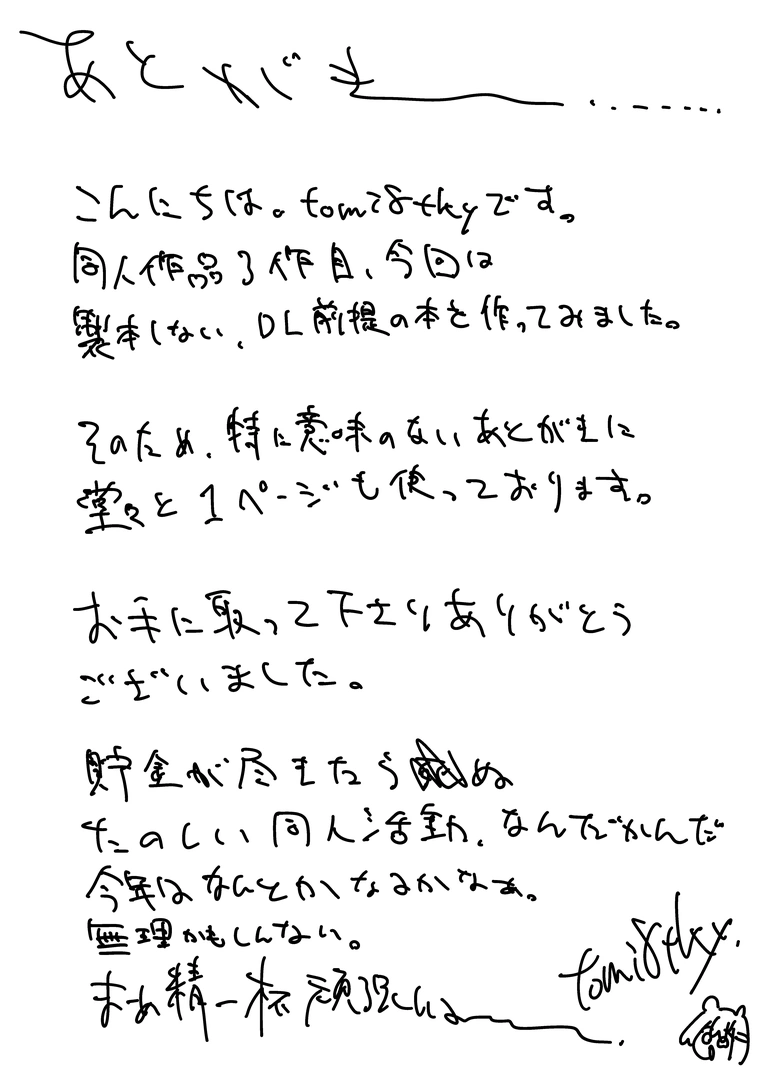 あとがき
こんにちは。tomi8tkyです。
同人作品3作目、今回は
製本しない、DL前提の本を作ってみました。
そのため、特に意味のないあとがきに
堂々と1ページも使っております。
お手に取って下さりありがとう
ございました。
貯金が尽きたら ぬ
たのしい同人活動、なんだかんだ
今年はなんとかなるかなぁ。
無理かもしんない。
まあ精一杯頑張るんば
tomi8tky.